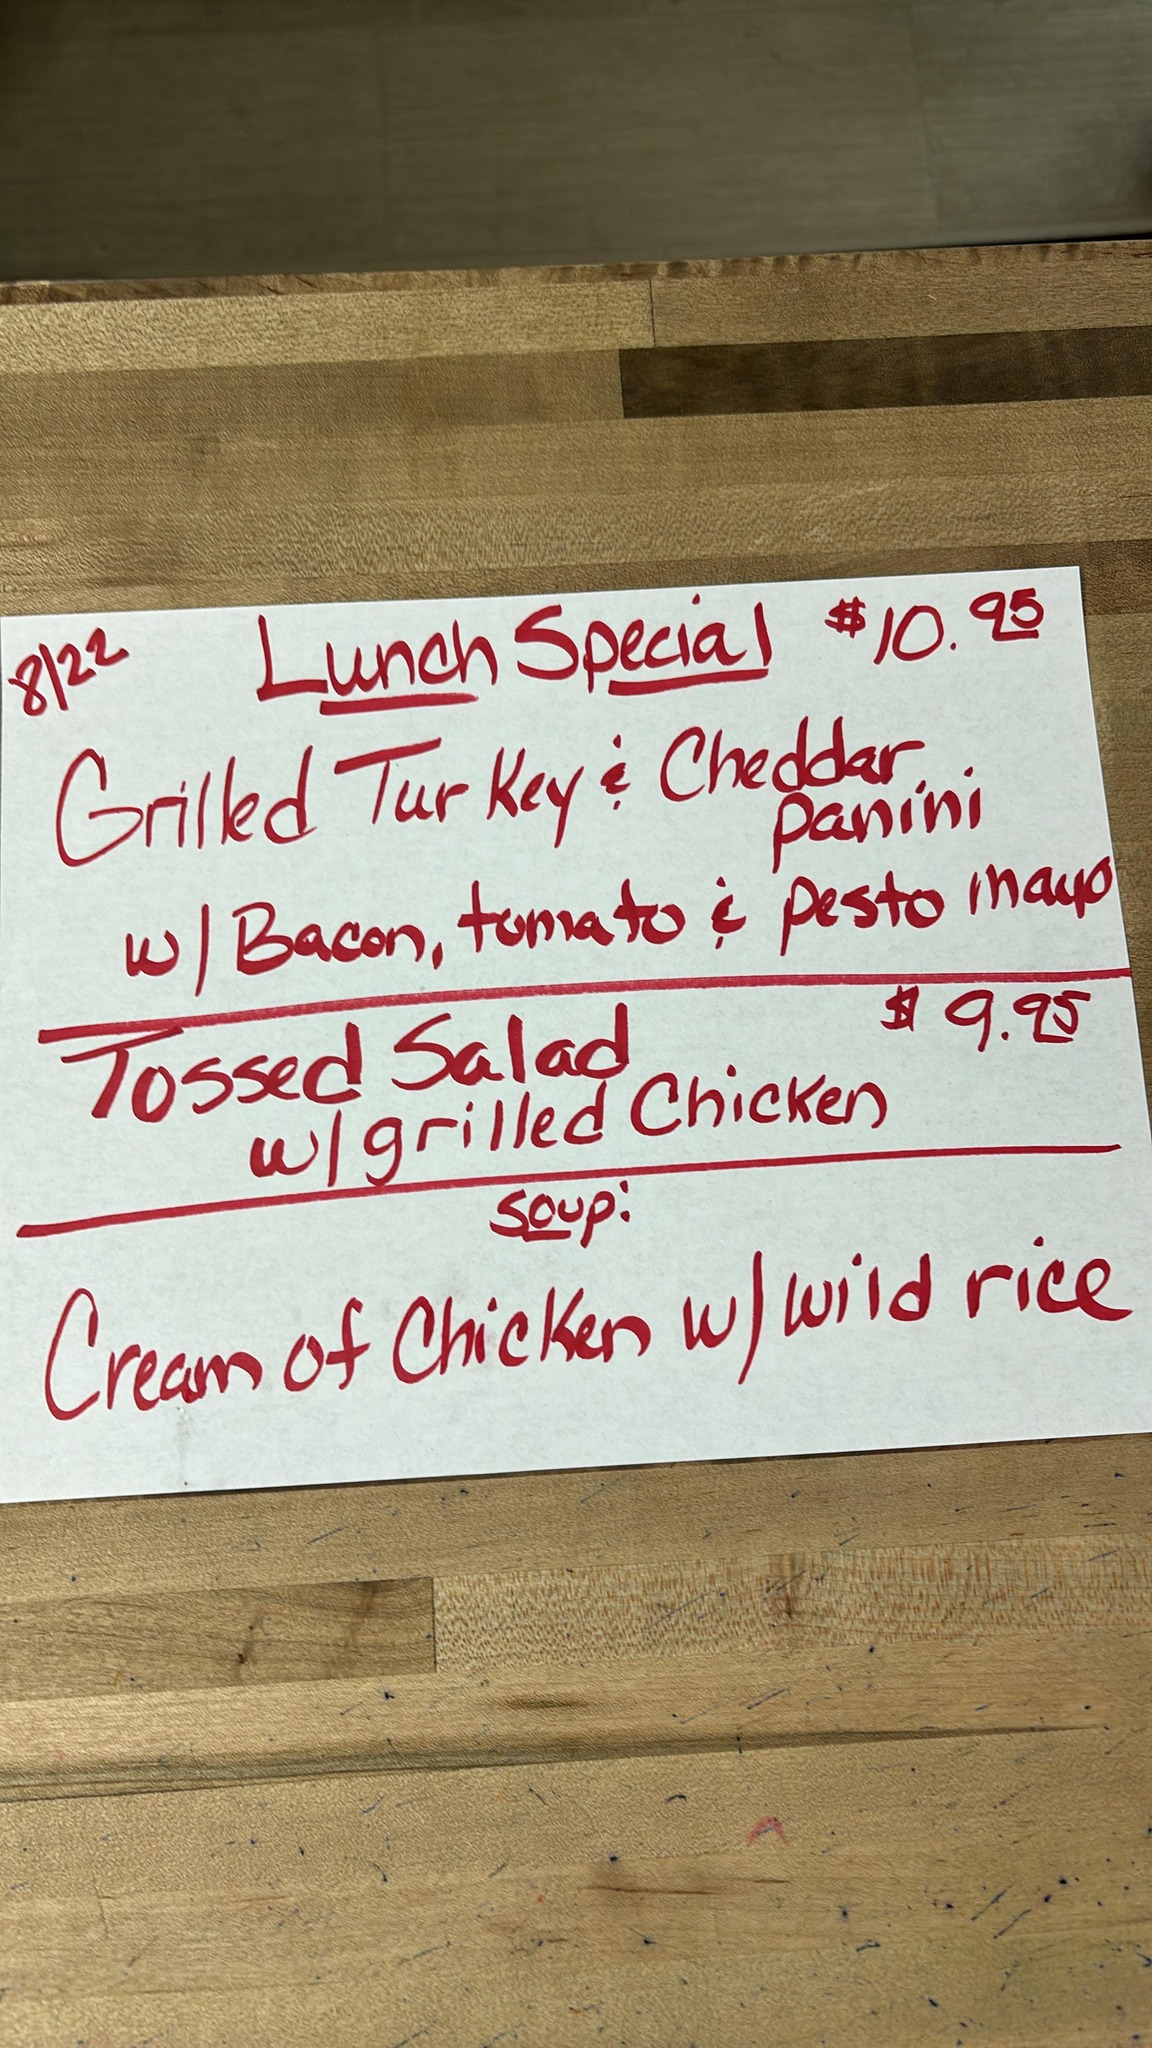 8/22 Lunch Special $10.95
Grilled Turkey & Cheddar
panini
w/ Bacon, tomato & pesto mayo
Tossed Salad $9.95
w/ grilled Chicken
Soup:
Cream of Chicken w/ wild rice